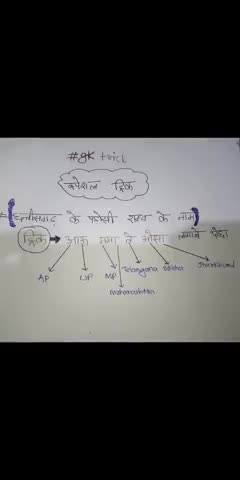 #gk trick
स्पेशल ट्रिक
छत्तीसगढ़ के पड़ोसी राज्य के नाम
ट्रिक → आऊ मामा ते ओसा लगाबे
AP UP MP Telangana Odisha Jharkhand
Maharashtra